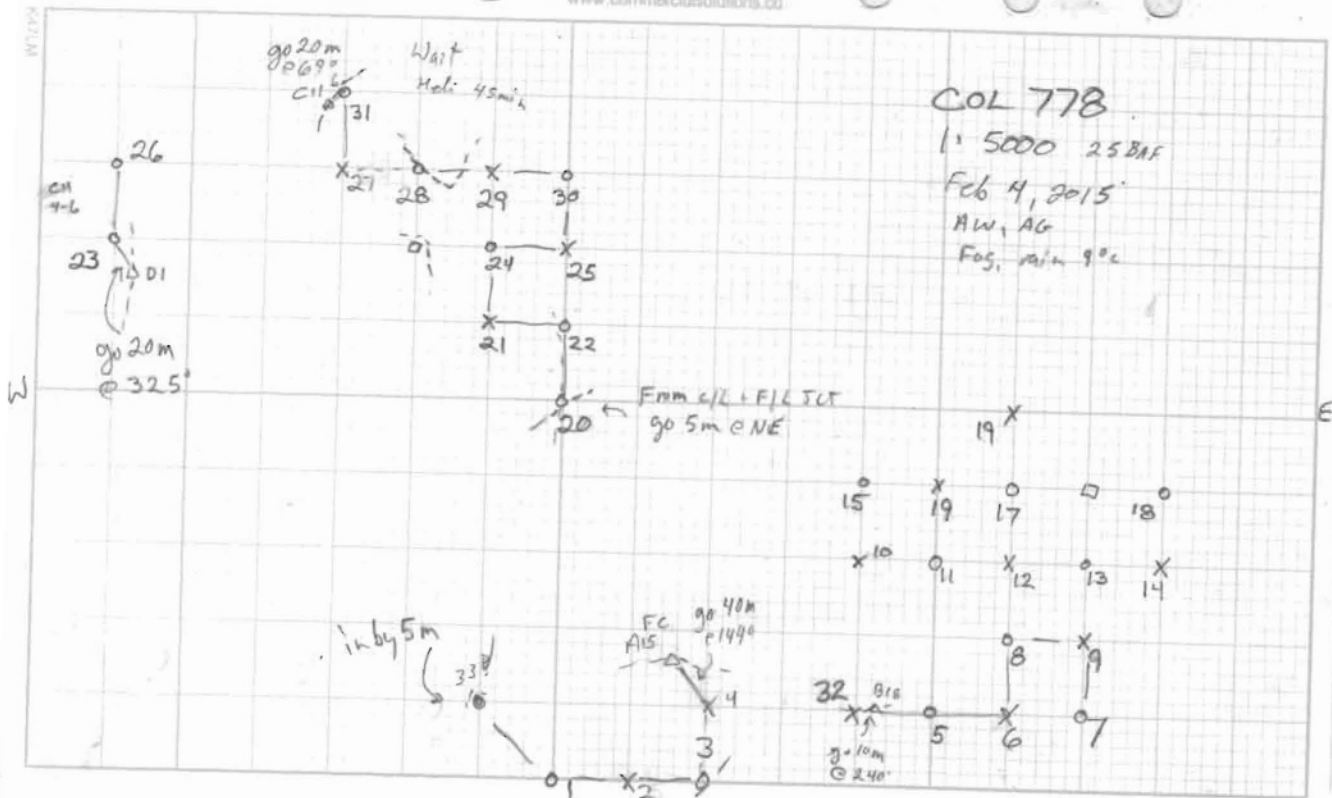 www.commercialsolutions.ca
COL 778
1:5000 25 BAF
Feb 4, 2015
AW, AG
Fog, rain 9°c
go 20m
@ 69°
Wait
Heli 45min
31
26
27
28
29
30
23
D1
24
25
go 20m
@ 325°
21
22
W
E
20
From c/L + F/L JCT
go 5m @ NE
19
15
19
17
18
10
11
12
13
14
in by 5m
33
FC
A15
go 40m
@ 149°
4
8
9
32
B18
5
6
7
go 10m
@ 240°
3
1
2